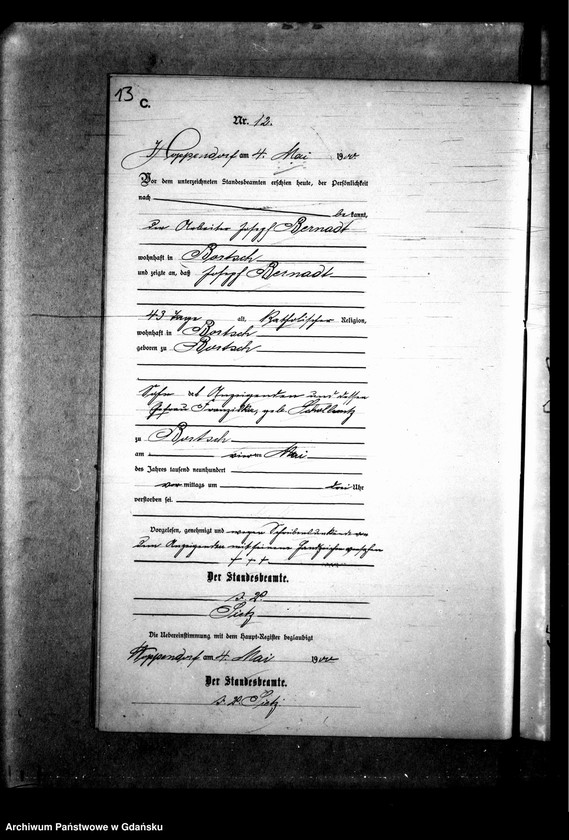 13 C.
Nr. 12.
Hoppendorf am 4. Mai 1900
Vor dem unterzeichneten Standesbeamten erschien heute, der Persönlichkeit
nach
be kannt,
der Arbeiter Joseph Bernadt
wohnhaft in Bortsch
und zeigte an, daß Joseph Bernadt
43 Tage alt, katholischer Religion,
wohnhaft in Bortsch
geboren zu Bortsch
Sohn des Anzeigenden und dessen
Ehefrau Franziska, geb.
zu Bortsch
am vierten Mai
des Jahres tausend neunhundert
vor mittags um drei Uhr
verstorben sei.
Vorgelesen, genehmigt und wegen Schreibensunkunde von
dem Anzeigenden mit seinem Handzeichen versehen
+ + +
Der Standesbeamte.
i. V.
Die Uebereinstimmung mit dem Haupt-Register beglaubigt
Hoppendorf am 4. Mai 1900
Der Standesbeamte.
i. V.
Archiwum Państwowe w Gdańsku